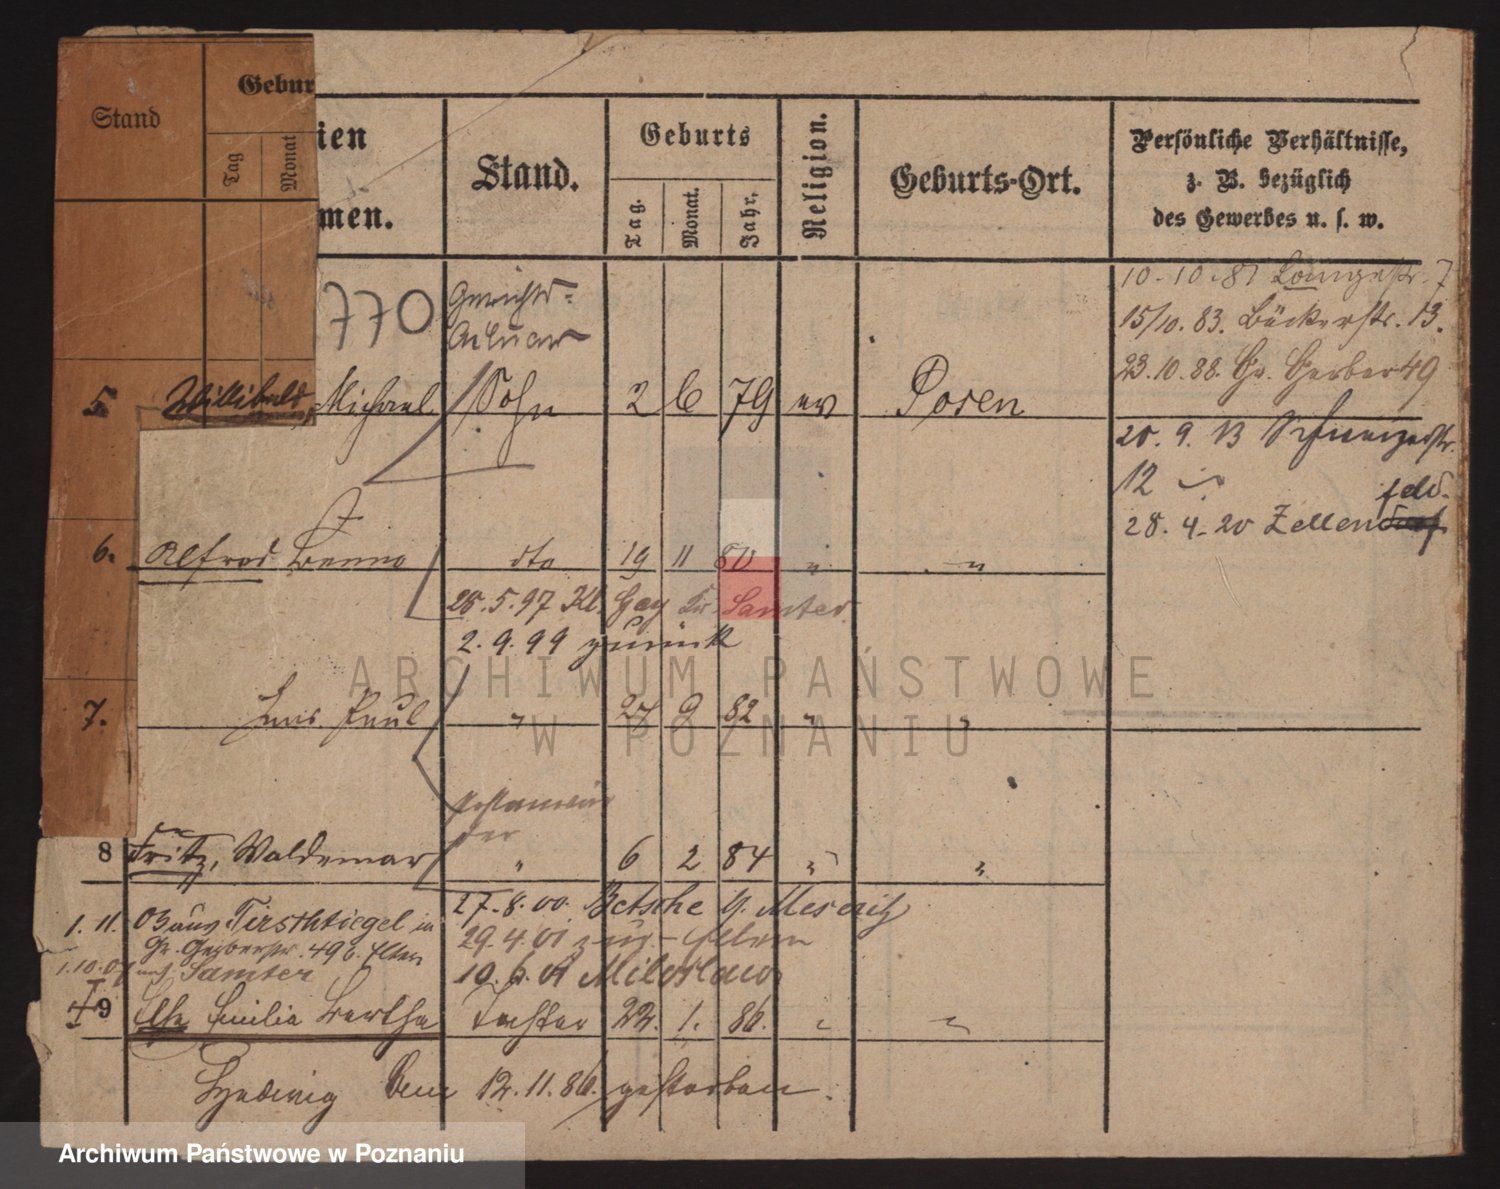 Stand
Gebur
Tag
Monat
ien
men.
Stand.
Geburts
Tag.
Monat.
Jahr.
Religion.
Geburts-Ort.
Persönliche Verhältnisse,
z. B. bezüglich
des Gewerbes u. s. w.
770
Gerichts-
Actuar
10-10.81 Langestr. 7
15/10. 83. Bäckerstr. 13.
23.10.88. Gr. Gerber 49
5 Willibald, Michael Sohn 2 6 79 ev Posen
20. 9. 13
12
feld.
28. 4. 20 Zellen
6. Alfred Benno dto 19 11 80 " "
28.5.97 Kl. Gay Kr. Samter.
2. 9. 99 zurück
7. Paul " 27 9 82 " "
8 Fritz, Waldemar " 6 2 84 " "
27.8.00. Betsche b. Meseritz
1. 11. 03 aus Tirschtiegel in
29.4.01 zur. Eltern
Gr. Gerberstr. 49 b. Eltern
1.10.04 nach Samter
10. 6. 01 Miloslaw
9 Else Emilia Bertha Tochter 22. 1. 86. " "
Hedwig den 12. 11. 86. gestorben.
ARCHIWUM PAŃSTWOWE
W POZNANIU
Archiwum Państwowe w Poznaniu